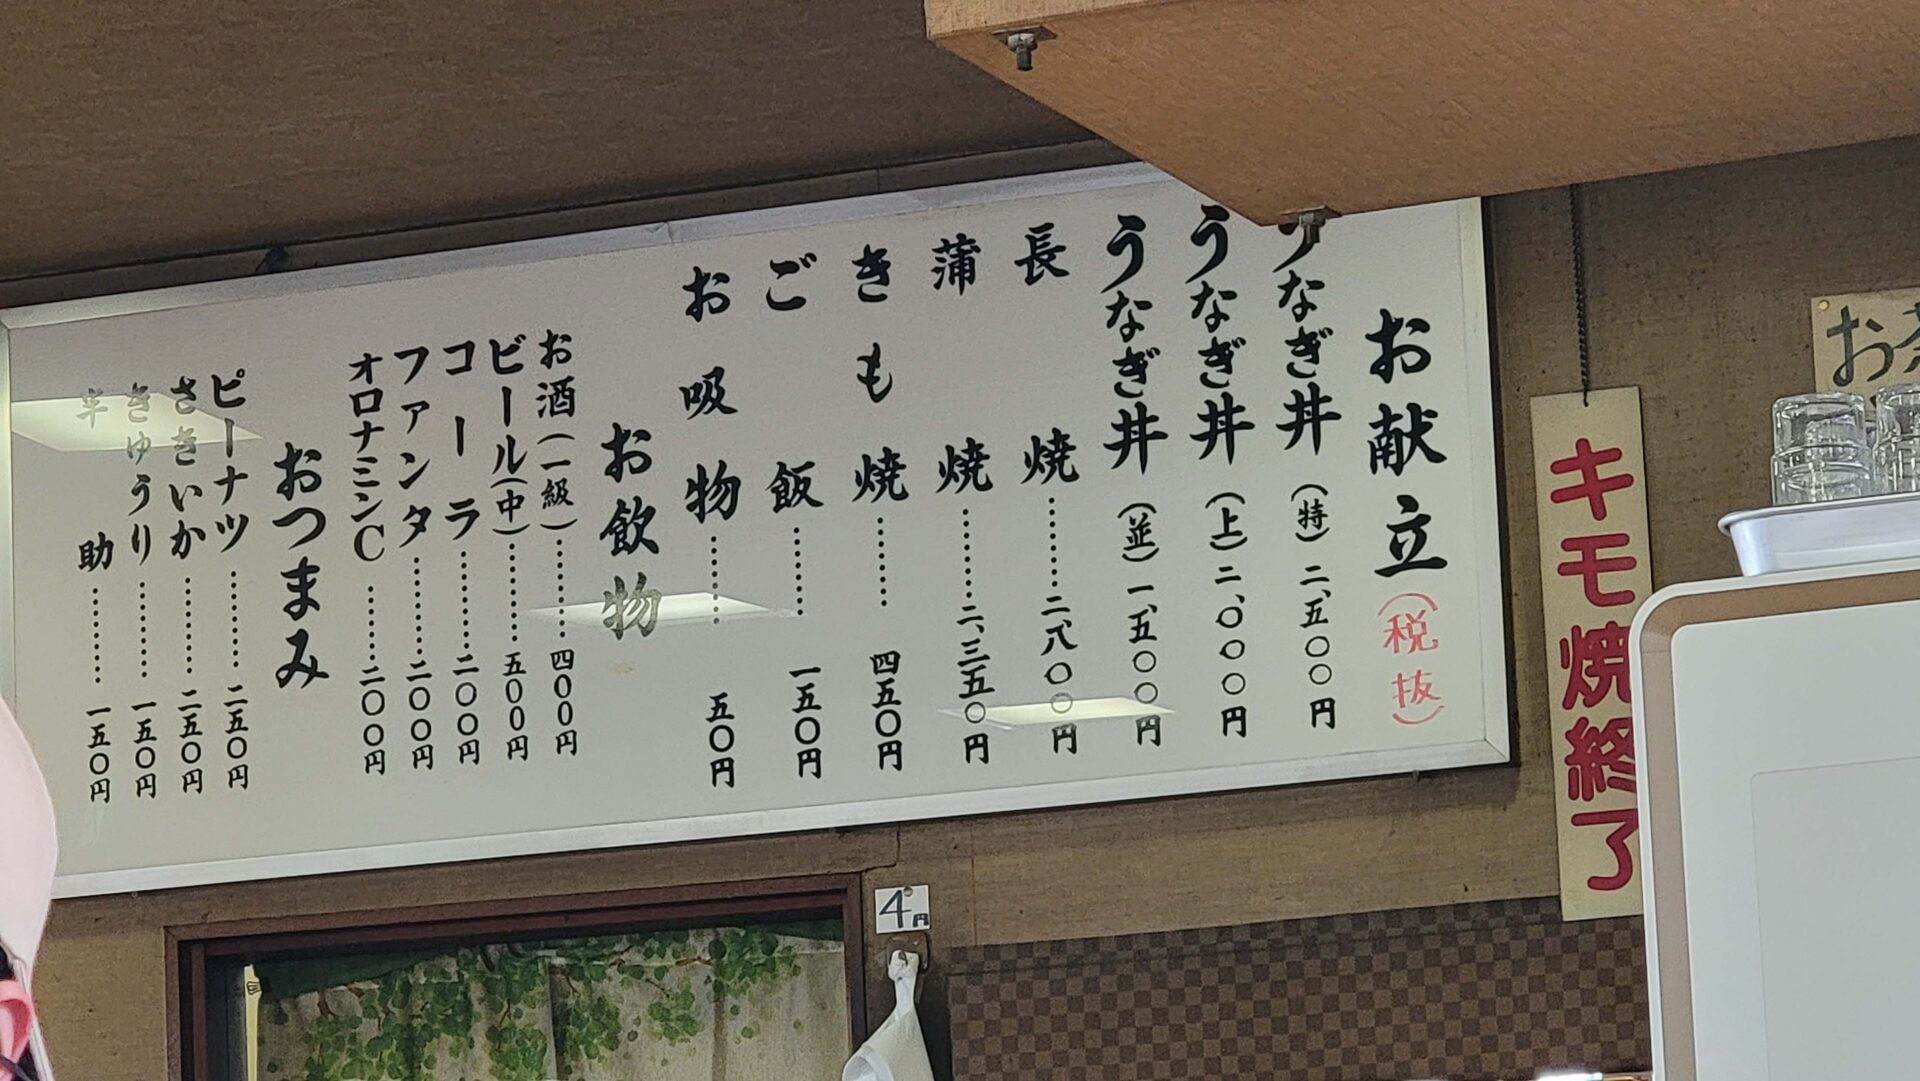 お献立(税抜)
うなぎ丼(特)二、五〇〇円
うなぎ丼(上)二、〇〇〇円
うなぎ丼(並)一、五〇〇円
長焼………二、八〇〇円
蒲焼………二、三五〇円
きも焼………四五〇円
ご飯………一五〇円
お吸物………五〇円
お飲物
お酒(一級)………四〇〇円
ビール(中)………五〇〇円
コーラ………二〇〇円
ファンタ………二〇〇円
オロナミンC………二〇〇円
おつまみ
ピーナツ………二五〇円
さきいか………二五〇円
きゅうり………一五〇円
助………一五〇円
キモ焼終了
お茶
4円